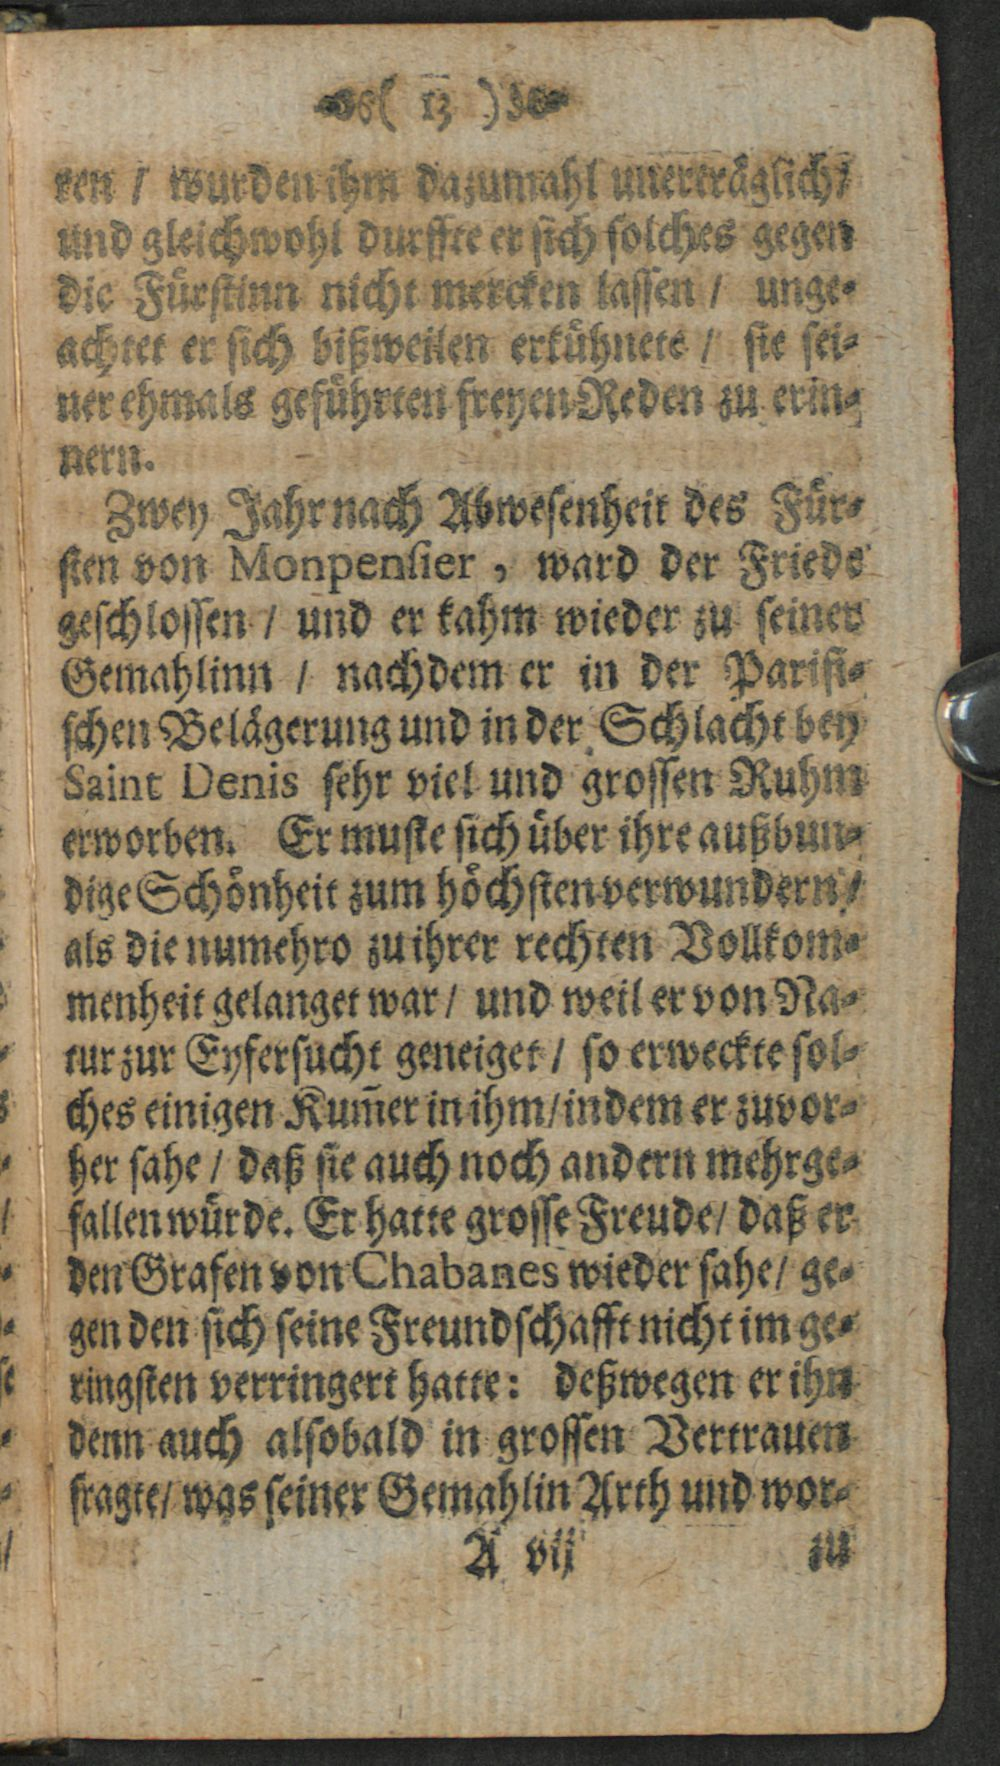 ( 13 )
ren / wurden ihm dazumahl unerträglich/
und gleichwohl durffte er sich solches gegen
die Fürstinn nicht mercken lassen / unge-
achtet er sich bißweilen erkühnete / sie sei-
ner ehmals geführten freyen Reden zu erin-
nern.
Zwey Jahr nach Abwesenheit des Für-
sten von Monpensier, ward der Friede
geschlossen / und er kahm wieder zu seiner
Gemahlinn / nachdem er in der Parisi-
schen Belägerung und in der Schlacht bey
Saint Denis sehr viel und grossen Ruhm
erworben. Er muste sich über ihre außbun-
dige Schönheit zum höchsten verwundern/
als die numehro zu ihrer rechten Vollkom-
menheit gelanget war / und weil er von Na-
tur zur Eyfersucht geneiget / so erweckte sol-
ches einigen Kum̃er in ihm/ indem er zuvor-
her sahe / daß sie auch noch andern mehr ge-
fallen würde. Er hatte grosse Freude/ daß er
den Grafen von Chabanes wieder sahe/ ge-
gen den sich seine Freundschafft nicht im ge-
ringsten verringert hatte: deßwegen er ihn
denn auch alsobald in grossen Vertrauen
fragte/ was seiner Gemahlin Arth und wor-
A vij zu